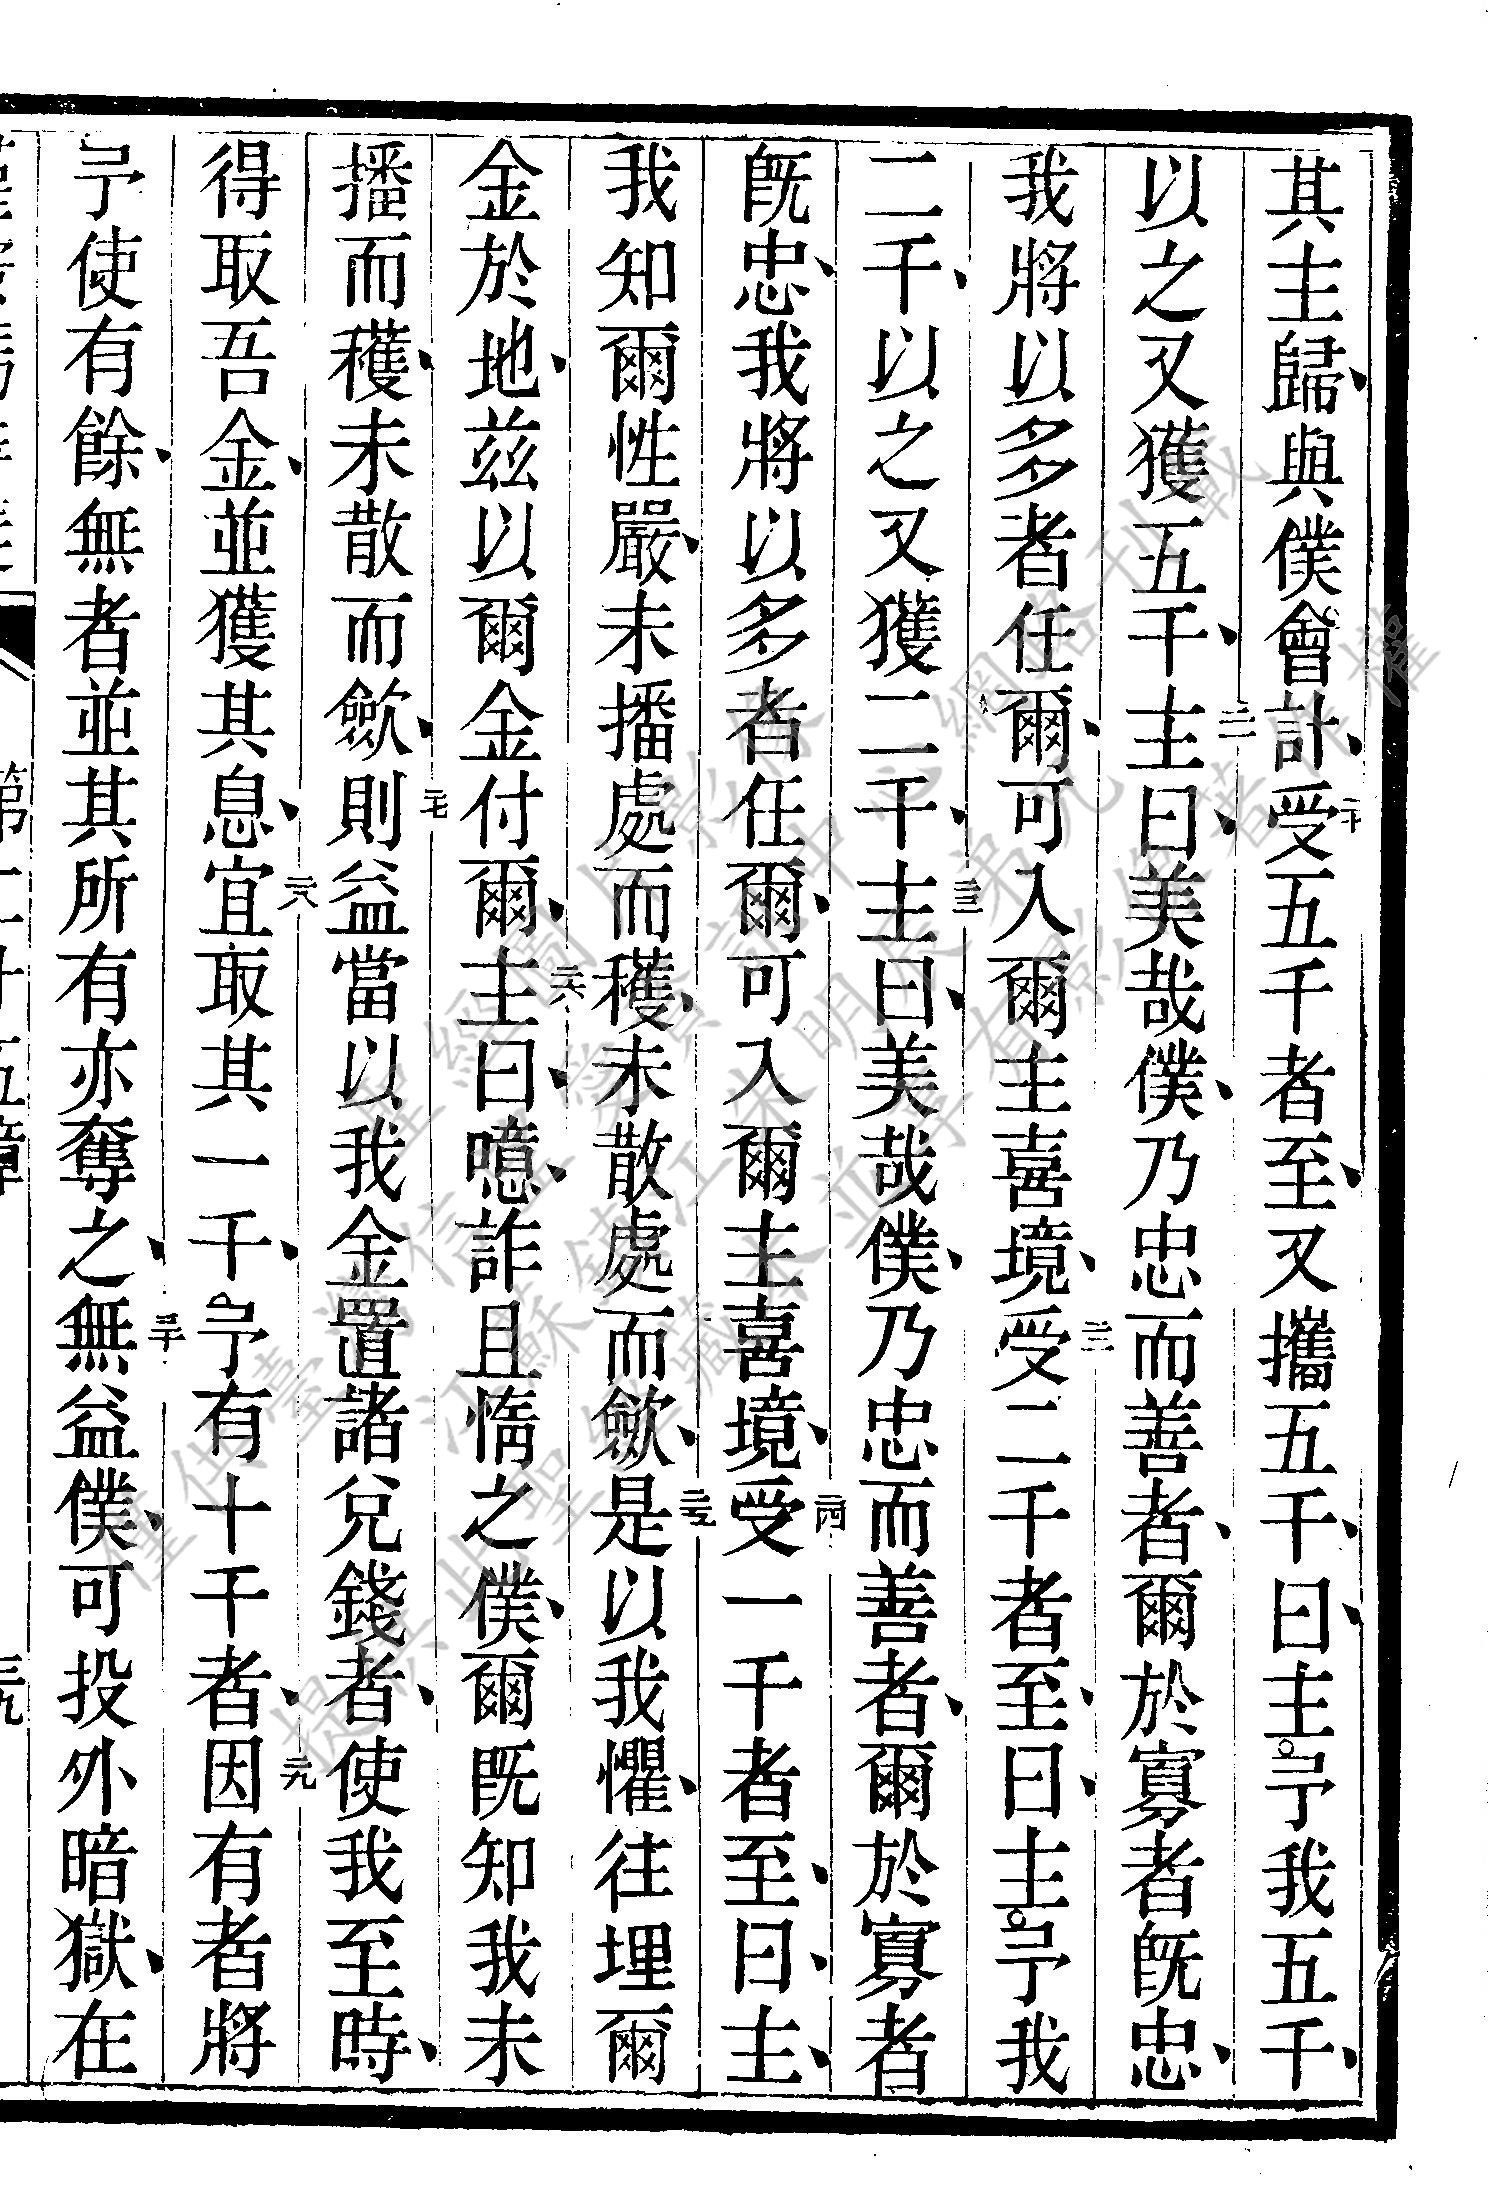 其主歸、與僕會計、二十受五千者至、又攜五千、曰、主、予我五千、
以之又獲五千、二一主曰、美哉僕、乃忠而善者、爾於寡者旣忠、
我將以多者任爾、可入爾主喜境、二二受二千者至、曰、主、予我
二千、以之又獲二千、二三主曰、美哉僕、乃忠而善者、爾於寡者
旣忠、我將以多者任爾、可入爾主喜境、二四受一千者至、曰、主、
我知爾性嚴、未播處而穫、未散處而斂、二五是以我懼、往埋爾
金於地、茲以爾金付爾、二六主曰、噫、詐且惰之僕、爾旣知我未
播而穫、未散而斂、二七則益當以我金置諸兌錢者、使我至時、
得取吾金、並獲其息、二八宜取其一千、予有十千者、二九因有者將
予使有餘、無者並其所有亦奪之、三十無益僕、可投外暗獄、在
第二十五章